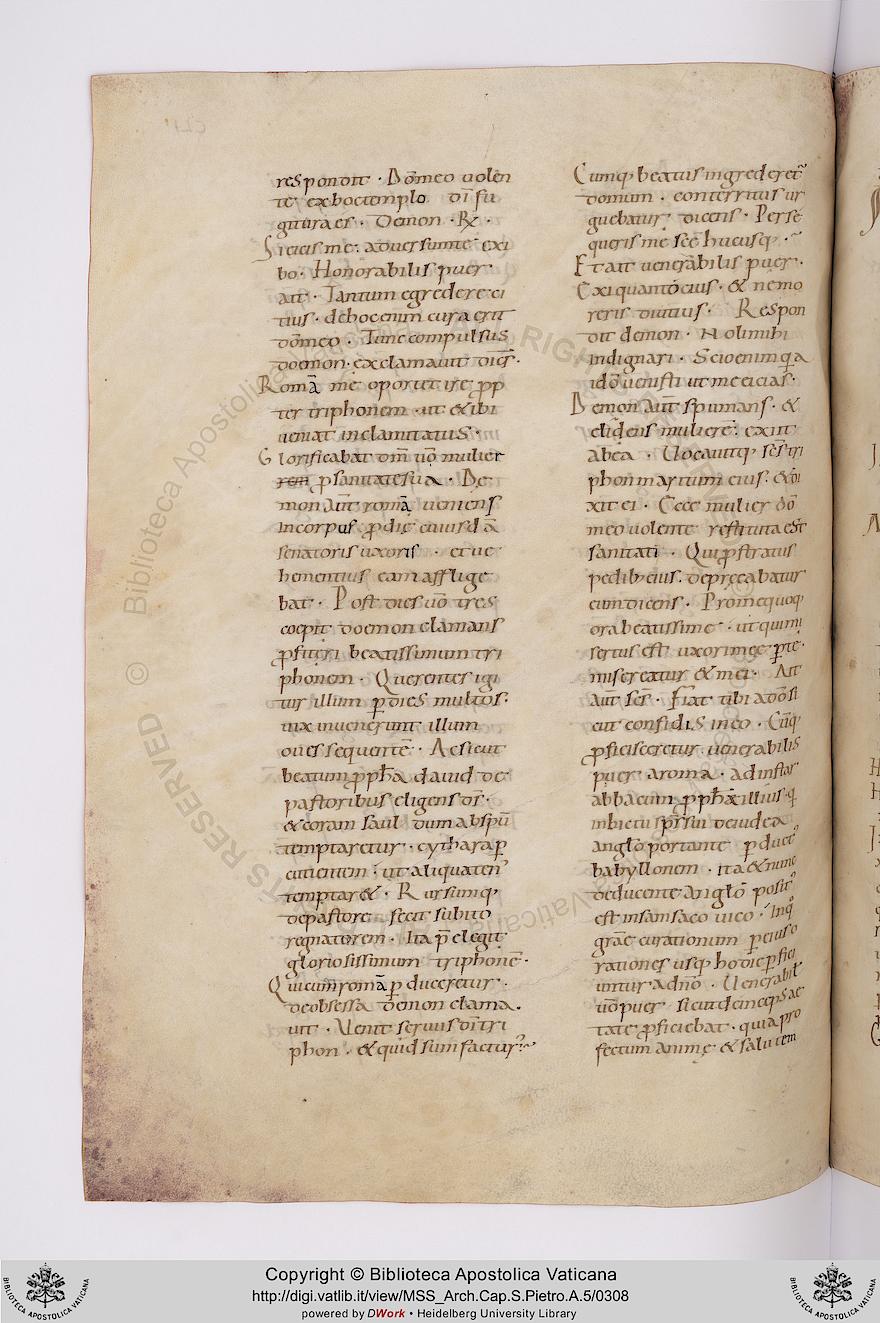 respondit · Dõmeo uolen
te exhoctemplo dĩ fu
giturães · Demon · R ·
Sieicis me · aduersumte exi
bo · Honorabilis puer
ait · Tantum egredere ci
tius · dehocenim cura erit
dõmeo · Tunc compulsus
doemon · exclamauit diĉs ·
Romã me oportet ire pp
ter triphonem · ut & ibi
ueniat inclamitatus ·
Glorificabat dm̃ uõ mulier
rem p sanitatesua · De
mon aũt romã ueniens
incorpus pdie cuiusdã
senatoris uxoris · et ue
hementius eam afflige
bat · Post dies uõ tres
coepit doemon clamans
pfiteri beatissimum tri
phonem · Querentes igi
tur illum p dies multos ·
uix inuenerunt illum
oues sequentẽ · Ac sicut
beatum ppħa dauid de
pastoribus eligens dš ·
& coram saul dum abspũ
temptaretur · cythara p
cutientem · ut aliquaten
temptar& · Rursumq
depastore · fecit subito
regnatorem · Ita p̃elegit
gloriosissimum triphonẽ ·
Quicum romã p duceretur ·
deobsessa doemon clama ·
uit · Uenit seruus dĩ tri
phon · & quid sum factur
Cumq beatus ingrederet
domum · conterritus ur
guebatur dicens · Perse
queris me sc̃e hucusq ·
Et ait uenerabilis puer ·
Exi quantocius · & nemo
reris diutius · Respon
dit demon · Noli mihi
indignari · Scio enim q a
idõ uenisti ut me eicias ·
Demon aũt spumans · &
elidens mulierẽ · exiit
abea · Uocauitq sc̃s tri
phon maritum eius · & di
xit ei · Ecce mulier dõ
meo uolente restituta est
sanitati · Qui pstratus
pedib eius · deprecabatur
eum dicens · Pro me quoq
ora beatissime · ut qui mi
sertus est uxori mee p te ·
misereatur & mei · Ait
aũt sc̃s · Fiat tibi a dõ si
cut confidis in eo · Cũq
pficisceretur uenerabilis
puer a roma · ad instar
abbacum pphã illius · q
inbictu sp̃s sui deiudea
anglo portante pduct
babyllonem · ita & nunc
deducente anglõ posit
est insamsaco uico · Inq
grãe curationum p eius o
rationes usq hodie pfici
untur a dñõ · Uenerabil
uõ puer sicut deinceps ae
tate pficiebat · quia pro
fectum anime & salutem
Copyright © Biblioteca Apostolica Vaticana
http://digi.vatlib.it/view/MSS_Arch.Cap.S.Pietro.A.5/0308
powered by DWork • Heidelberg University Library